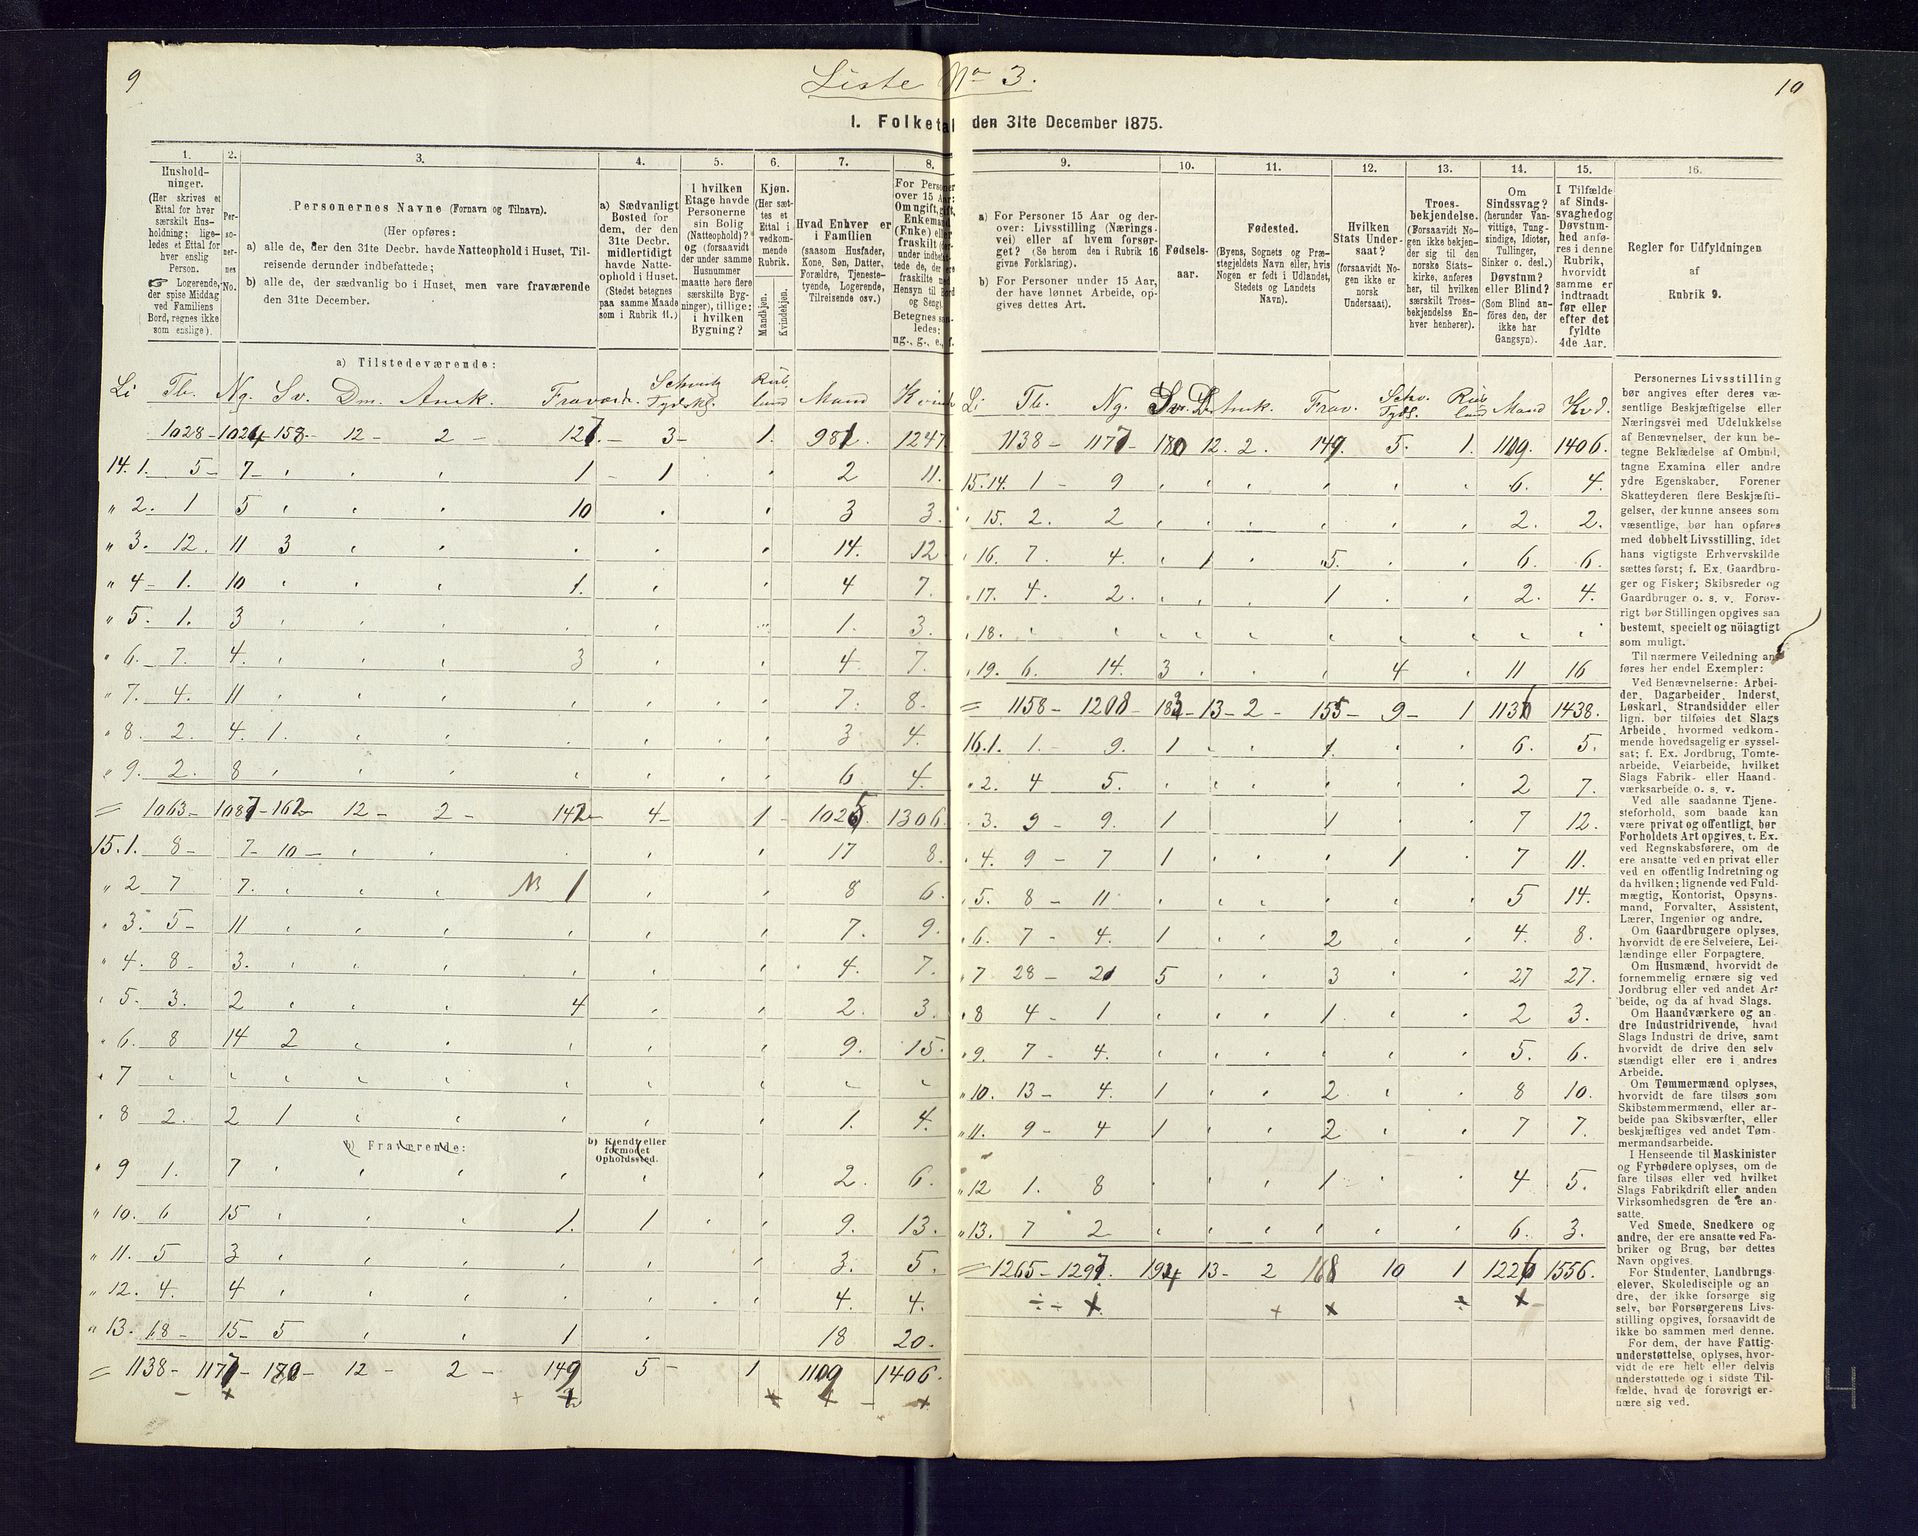 9
Liste No 3.
10
1. Folketal den 31te December 1875.
1. 2. 3. 4. 5. 6. 7. 8.
Hushold-
ninger.
(Her skrives et
Ettal for hver
særskilt Hus-
holdning; lige-
ledes et Ettal for
hver enslig
Person.
☞ Logerende,
der spise Middag
ved Familiens
Bord, regnes ikke
som enslige).
Per-
so-
ner-
nes
No.
Personernes Navne (Fornavn og Tilnavn).
(Her opføres:
a) alle de, der den 31te Decbr. havde Natteophold i Huset, Til-
reisende derunder indbefattede;
b) alle de, der sædvanlig bo i Huset, men vare fraværende
den 31te December.
a) Sædvanligt
Bosted for
dem, der den
31te Decbr.
midlertidigt
havde Natte-
ophold i Huset.
(Stedet betegnes
paa samme Maade
som i Rubrik 11.)
I hvilken
Etage havde
Personerne
sin Bolig
(Natteophold)?
og (forsaavidt
der under samme
Husnummer
maatte høre flere
særskilte Byg-
ninger), tillige:
i hvilken
Bygning?
Kjøn.
(Her sæt-
tes et
Ettal i
vedkom-
mende
Rubrik.
Mandkjøn.
Kvindekjøn.
Hvad Enhver er
i Familien
(saasom Husfader,
Kone, Søn, Datter,
Forældre, Tjeneste-
tyende, Logerende,
Tilreisende osv.)
For Personer
over 15 Aar:
Om ugift, gift,
Enkemand
(Enke) eller
fraskilt
Betegnes saa-
ledes:
ug., g., e., f.
a) Tilstedeværende:
Li Tb. Ng. Sv. Dm. Ansk. Fravær. Schweitz Tydskl. Rusland Mand Kvinde
1028- 1024 158- 12- 2- 127- 3- 1. 981. 1247
14.1. 5- 7- 1 1 2 11.
" 2. 1 5 10 3 3.
" 3. 12. 11 3 14. 12
" 4 1. 10 1. 4 7.
" 5. 1. 3 1. 3.
" 6. 7. 4. 3 4 7.
" 7. 4. 11 7. 8.
" 8. 2. 4. 1. 3 4.
" 9. 2. 8 6 4.
= 1063- 1087- 162- 12- 2- 142- 4- 1- 1025. 1306.
15.1. 8- 7- 10- 17 8.
" 2 7 7. 1 8 6.
" 3. 5- 11 7. 9.
" 4. 8- 3. 4. 7.
" 5. 3. 2 4 2. 3.
" 6. 8 14 2 9. 15.
" 7
" 8 2. 2 1 1. 4.
b) Fraværende:
b) Kjendt eller
formodet
Opholdssted.
" 9 1. 7 2. 6.
" 10. 6 15 1. 1 9. 13.
" 11. 5 3 3. 5.
" 12. 4. 4 4. 4.
" 13. 18- 15- 5 1 18 20.
= 1138- 1177- 180- 12- 2- 149 5- 1 1109 1406.
9. 10. 11. 12. 13. 14. 15. 16.
a) For Personer 15 Aar og der-
over: Livsstilling (Nærings-
vei) eller af hvem forsør-
get? (Se herom den i Rubrik 16
givne Forklaring).
b) For Personer under 15 Aar,
der have lønnet Arbeide, op-
gives dettes Art.
Fødsels-
aar.
Fødested.
(Byens, Sognets og Præ-
stegjeldets Navn eller, hvis
Nogen er født i Udlandet,
Stedets og Landets
Navn).
Hvilken
Stats Under-
saat?
(forsaavidt No-
gen ikke er
norsk
Undersaat).
Troes-
bekjendelse.
(Forsaavidt No-
gen ikke bekjen-
der sig til den
norske Stats-
kirke, anføres
her, til hvilken
særskilt Troes-
bekjendelse En-
hver henhører).
Om
Sindssvag?
(herunder Van-
vittige, Tung-
sindige, Idioter,
Tullinger,
Sinker o. desl.)
Døvstum?
eller Blind?
(Som Blind an-
føres den, der
ikke har
Gangsyn).
I Tilfælde
af Sinds-
svaghed og
Døvstum-
hed anfø-
res i denne
Rubrik,
hvorvidt
samme er
indtraadt
før eller
efter det
fyldte
4de Aar.
Regler for Udfyldningen
af
Rubrik 9.
Li Tb. Ng. Sv. D. Ansk. Frav. Schv. Tyds. Rusland Mand Kvd.
1138- 1177- 180 12. 2. 149. 5. 1. 1109. 1406.
15.14. 1- 9 6. 4.
" 15. 2. 2 2. 2.
" 16. 7. 4. 1 5. 6. 6.
" 17. 4. 2. 1 2. 4.
" 18.
" 19. 6. 14. 3 4 11 16
= 1158- 1208- 183- 13- 2- 155- 9- 1 1136 1438.
16.1. 1. 9. 1 1. 6. 5.
" 2. 4 5. 2 7.
" 3. 9- 9. 1 1 7 12.
" 4. 9- 7 1 1 7 11.
" 5. 8- 11 5 14.
" 6. 7- 4. 1 2 4. 8.
" 7 28- 21 5 3 27 27.
" 8 4- 1 1 2 3.
" 9. 7- 4. 5. 6.
" 10. 13- 4. 1 2 8 10.
" 11. 9- 4 1 2 7 7.
" 12 1. 8 1 4 5.
" 13. 7 2 6. 3.
= 1265- 1297. 194 13- 2 168 10 1 1226 1556.
Personernes Livsstilling
bør angives efter deres væ-
sentlige Beskjæftigelse eller
Næringsvei med Udelukkelse
af Benævnelser, der kun be-
tegne Beklædelse af Ombud,
tagne Examina eller andre
ydre Egenskaber. Forener
Skatteyderen flere Beskjæfti-
gelser, der kunne ansees som
væsentlige, bør han opføres
med dobbelt Livsstilling, idet
hans vigtigste Erhvervskilde
sættes først; f. Ex. Gaardbru-
ger og Fisker; Skibsreder og
Gaardbruger o. s. v. Forøv-
rigt bør Stillingen opgives saa
bestemt, specielt og nöiagtigt
som muligt.
Til nærmere Veiledning an-
føres her endel Exempler:
Ved Benævnelserne: Arbei-
der, Dagarbeider, Inderst,
Løskarl, Strandsidder eller
lign. bør tilføies det Slags
Arbeide, hvormed vedkom-
mende hovedsagelig er syssel-
sat; f. Ex. Jordbrug, Tomte-
arbeide, Veiarbeide, hvilket
Slags Fabrik- eller Haand-
værksarbeide o. s. v.
Ved alle saadanne Tjene-
steforhold, som baade kan
være privat og offentligt, bør
Forholdets Art opgives, t. Ex.
ved Regnskabsførere, om de
ere ansatte ved en privat eller
ved en offentlig Indretning og
da hvilken; lignende ved Fuld-
mægtig, Kontorist, Opsyns-
mand, Forvalter, Assistent,
Lærer, Ingeniør og andre.
Om Gaardbrugere oplyses,
hvorvidt de ere Selveiere, Lei-
lændinge eller Forpagtere.
Om Husmænd, hvorvidt de
fornemmelig ernære sig ved
Jordbrug eller ved andet Ar-
beide, og da af hvad Slags.
Om Haandværkere og an-
dre Industridrivende, hvad
Slags Industri de drive, samt
hvorvidt de drive den selv-
stændigt eller ere i andres
Arbeide.
Om Tømmermænd oplyses,
hvorvidt de fare tilsøs som
Skibstømmermænd, eller ar-
beide paa Skibsværfter, eller
beskjæftiges ved andet Tøm-
mermandsarbeide.
I Henseende til Maskinister
og Fyrbødere oplyses, om de
fare tilsøs eller ved hvilket
Slags Fabrikdrift eller anden
Virksomhedsgren de ere an-
satte.
Ved Smede, Snedkere og
andre, der ere ansatte ved Fa-
briker og Brug, bør dettes
Navn opgives.
For Studenter, Landbrugs-
elever, Skoledisciple og an-
dre, der ikke forsørge sig
selv, bør Forsørgerens Livs-
stilling opgives, forsaavidt de
ikke bo sammen med denne.
For dem, der have Fattig-
understøttelse, oplyses, hvor-
vidt de ere helt eller delvis
understøttede og i sidste Til-
fælde, hvad de forøvrigt er-
nære sig ved.